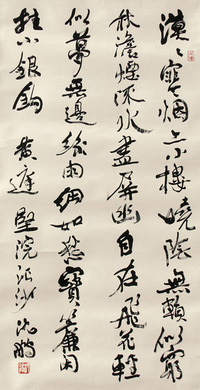 漠〻寒烟上小樓曉陰無賴似窮
秋澹煙流水畫屏幽自在飛花輕
似夢無邊絲雨細如愁寶簾閑
挂小銀鈎 黄庭堅浣溪沙 沈鵬